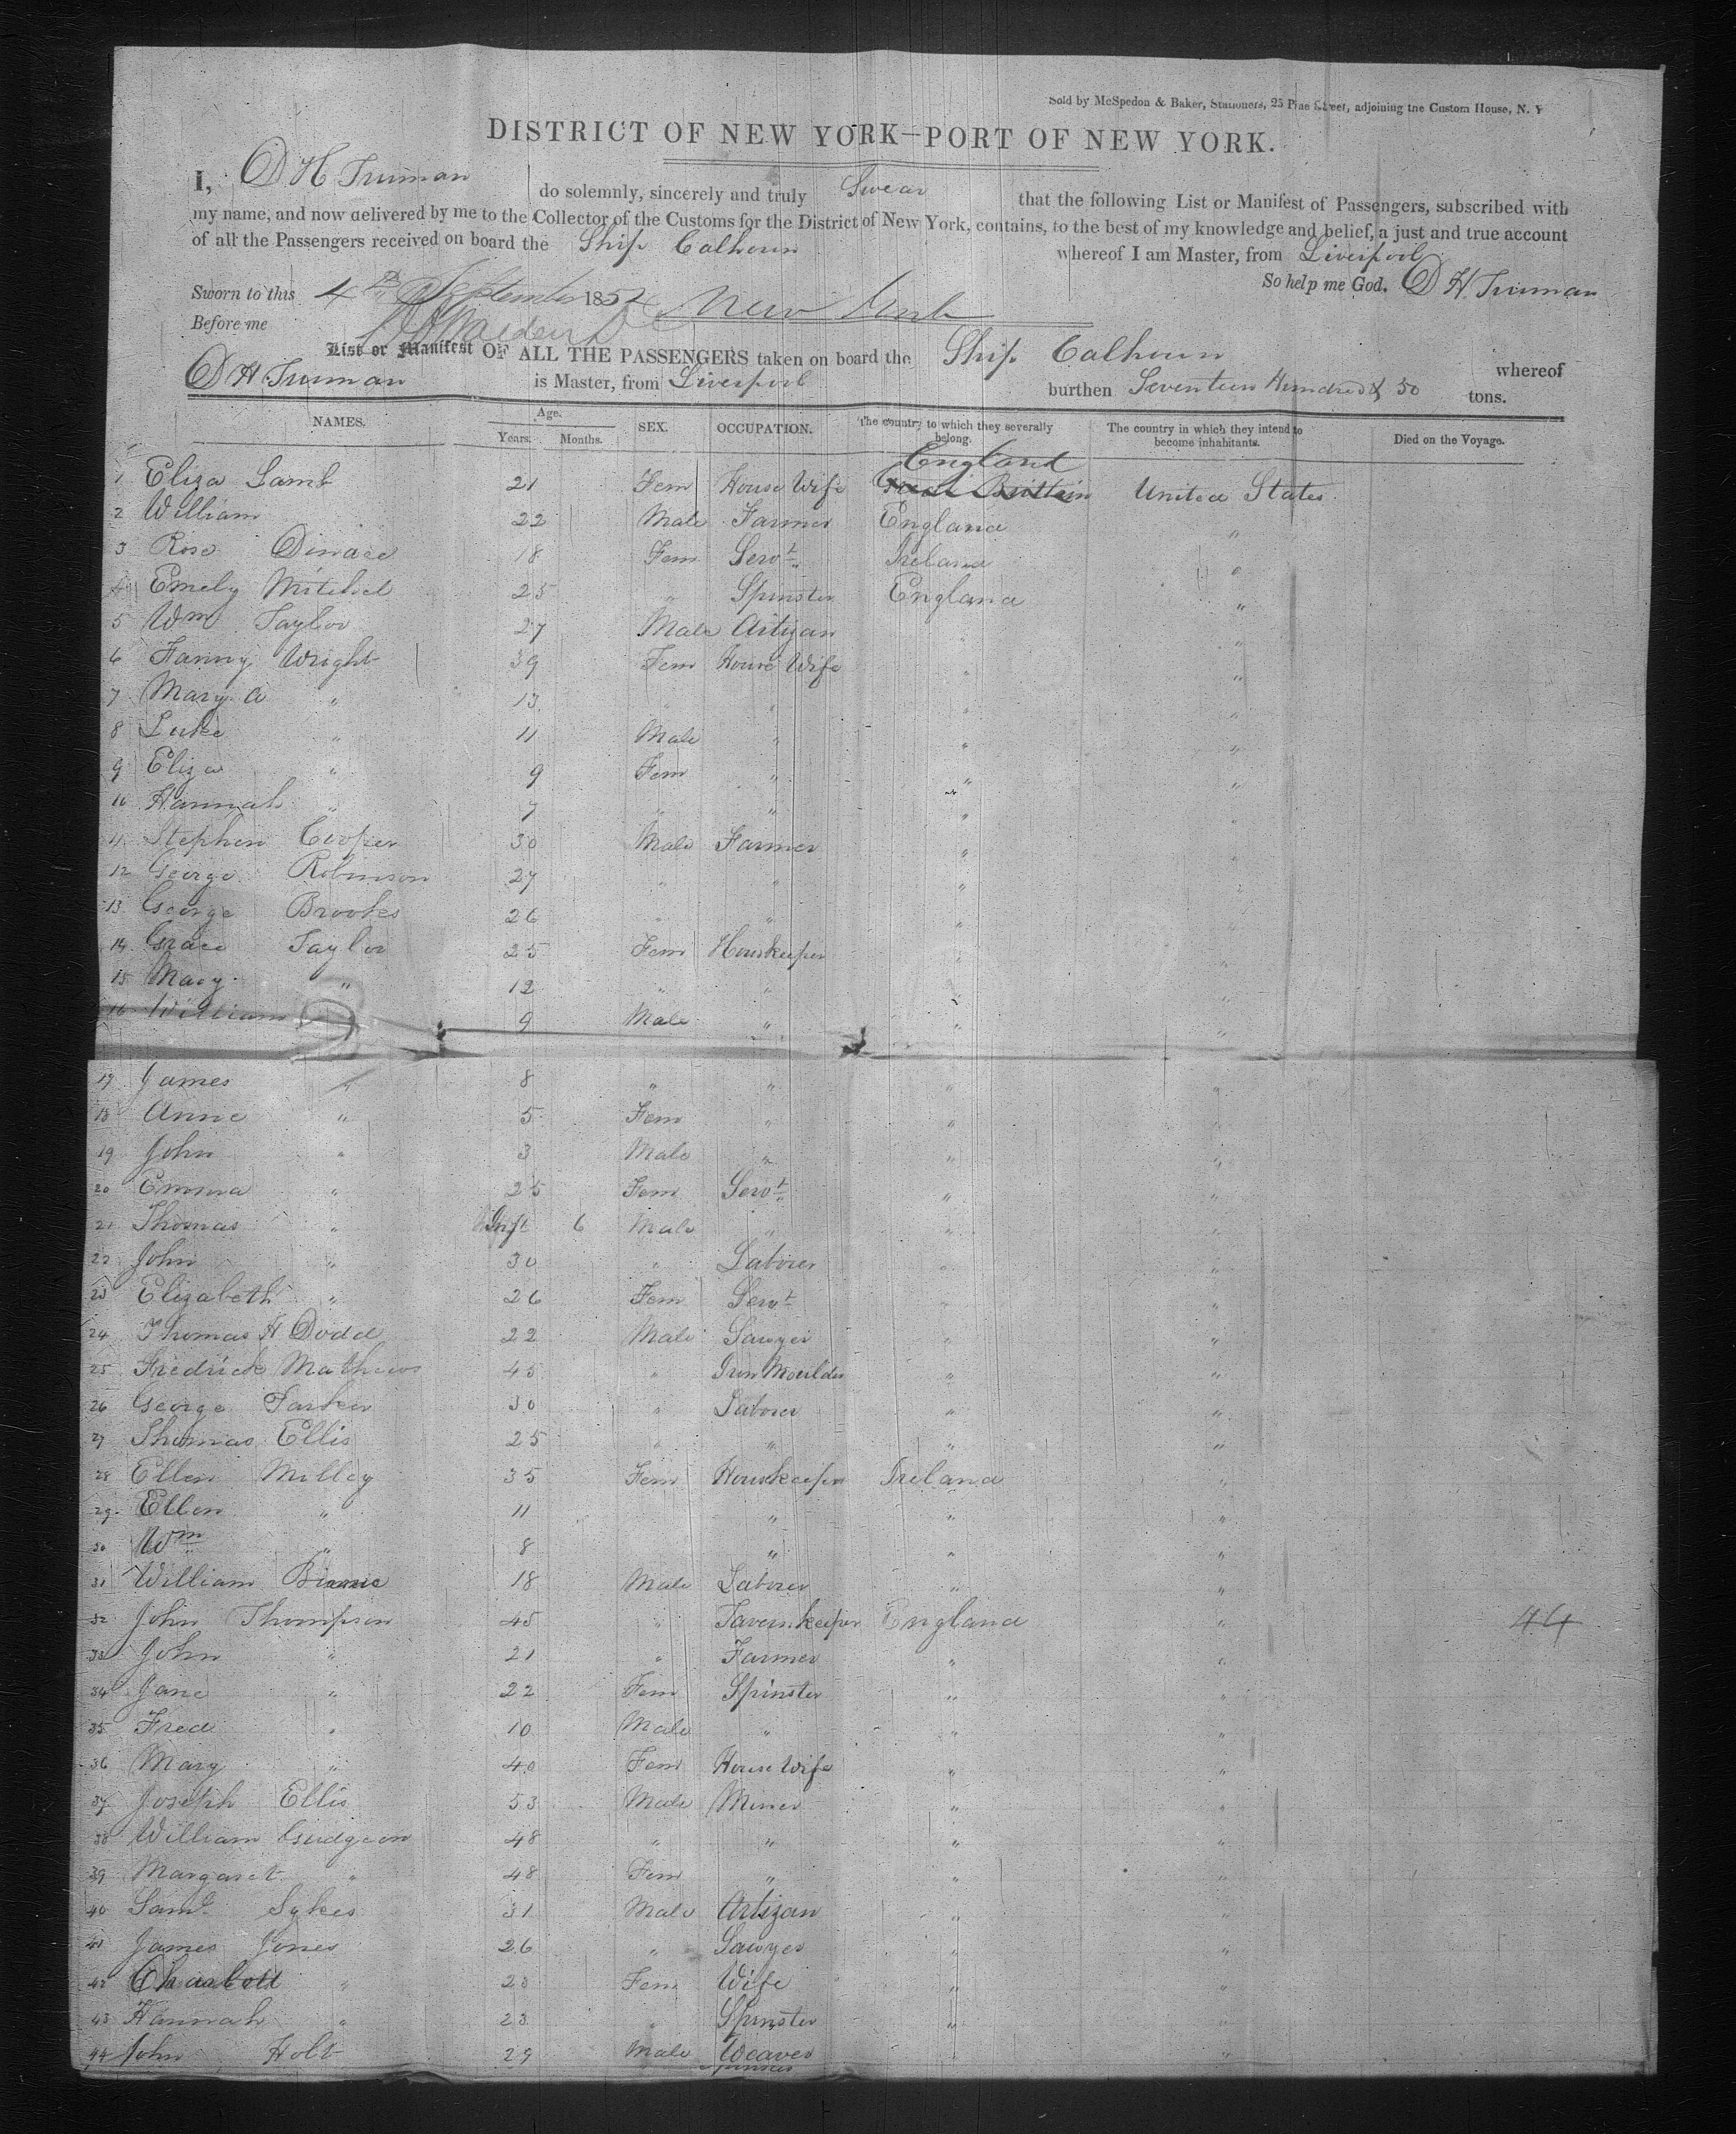 Sold by McSpedon & Baker, Stationers, 25 Pine Street, adjoining the Custom House, N. Y
DISTRICT OF NEW YORK—PORT OF NEW YORK.
I, D H Truman do solemnly, sincerely and truly Swear that the following List or Manifest of Passengers, subscribed with
my name, and now delivered by me to the Collector of the Customs for the District of New York, contains, to the best of my knowledge and belief, a just and true account
of all the Passengers received on board the Ship Calhoun whereof I am Master, from Liverpool
So help me God. D H. Truman
Sworn to this 4th September 1852 New York
Before me
List or Manifest OF ALL THE PASSENGERS taken on board the Ship Calhoun whereof
D H Truman is Master, from Liverpool burthen Seventeen Hundred & 50 tons.
NAMES. Age. Years. Months. SEX. OCCUPATION. The country to which they severally belong. The country in which they intend to become inhabitants. Died on the Voyage.
England
1 Eliza Lamb 21 Fem House Wife Great Brittain United States
2 William 22 Male Farmer England "
3 Rose 18 Fem Servt Ireland "
4 Emely Mitchel 25 " Spinster England "
5 Wm Taylor 27 Male Artizan " "
6 Fanny Wright 39 Fem House Wife " "
7 Mary A " 13 " " " "
8 Luke " 11 Male " " "
9 Eliza " 9 Fem " " "
10 Hannah " 7 " " " "
11 Stephen Cooper 30 Male Farmer " "
12 George Robinson 27 " " " "
13 George Brookes 26 " " " "
14 Grace Taylor 25 Fem Houskeeper " "
15 Mary " 12 " " " "
16 William 9 Male " " "
17 James " 8 " " " "
18 Anne " 5 Fem " " "
19 John " 3 Male " " "
20 Emma " 25 Fem Servt " "
21 Thomas " Inft 6 Male " " "
22 John " 30 " Laborer " "
23 Elizabeth " 26 Fem Servt " "
24 Thomas H Dodd 22 Male Sawyer " "
25 Fredrick Mathews 45 " Iron Moulder " "
26 George Parker 30 " Laborer " "
27 Thomas Ellis 25 " " " "
28 Ellen Milley 35 Fem Houskeeper Ireland "
29 Ellen " 11 " " "
30 Wm " 8 " " "
31 William 18 Male Laborer " "
32 John Thompson 45 " Tavernkeeper England " 44
33 John " 21 " Farmer " "
34 Jane " 22 Fem Spinster " "
35 Fred " 10 Male " " "
36 Mary " 40 Fem House Wife " "
37 Joseph Ellis 53 Male Miner " "
38 William Gudgeon 48 " " " "
39 Margaret " 48 Fem " " "
40 Saml Sykes 31 Male Artizan " "
41 James Jones 26 " Sawyer " "
42 " 20 Fem Wife " "
43 Hannah " 23 " Spinster " "
44 John Holt 29 Male Weaver " "